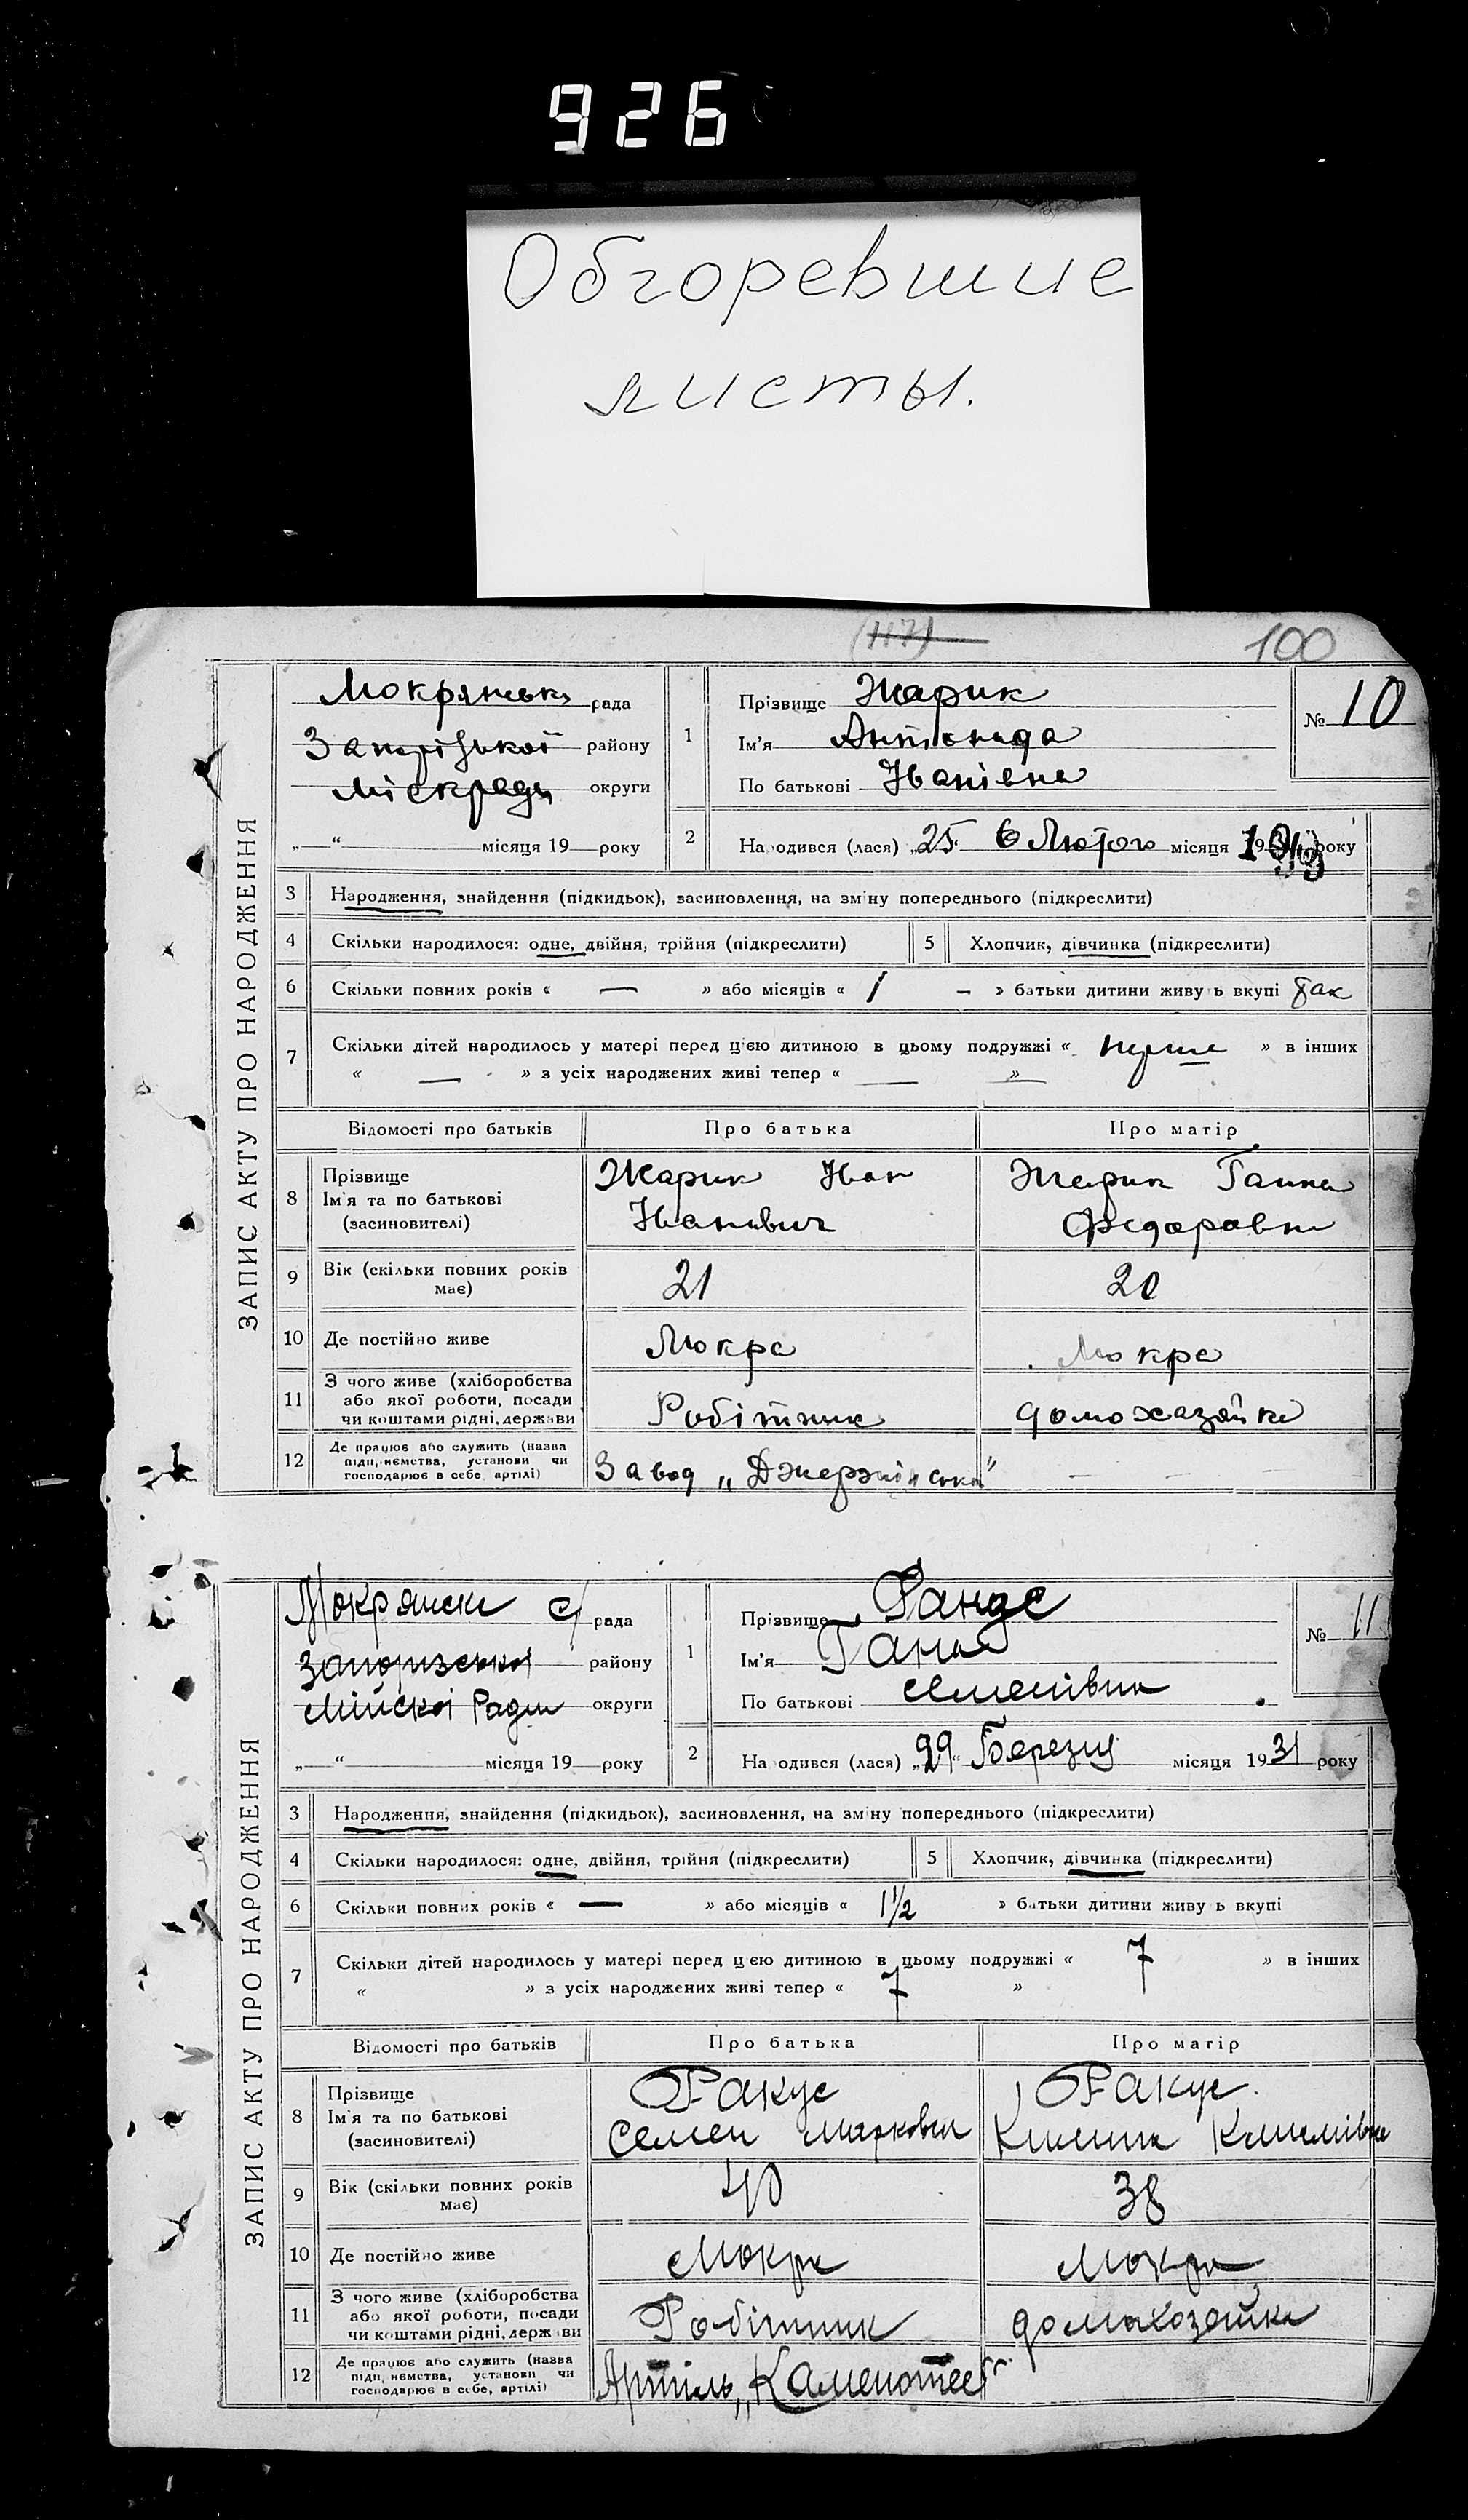 926
Обгоревшие
листы.
(117)
100
ЗАПИС АКТУ ПРО НАРОДЖЕННЯ
Мокрянськ рада
Запорізької району
Міськради округи
„—“ місяця 19— року
1
Прізвище Жарик
Ім'я
По батькові Іванівна
№ 10
2
Народився (лася) „25. Лютого місяця 19 року
3 Народження, знайдення (підкидьок), засиновлення, на зміну попереднього (підкреслити)
4 Скільки народилося: одне, двійня, трійня (підкреслити) 5 Хлопчик, дівчинка (підкреслити)
6 Скільки повних років « — » або місяців « 1 – » батьки дитини живуть вкупі так
7 Скільки дітей народилось у матері перед цією дитиною в цьому подружжі « перше » в інших
« — » з усіх народжених живі тепер « — »
Відомості про батьків Про батька Про матір
8 Прізвище Ім'я та по батькові (засиновителі)
Жарик Іван Жарик Ганна
Іванович Федоровна
9 Вік (скільки повних років має) 21 20
10 Де постійно живе Мокра Мокра
11 З чого живе (хліборобства або якої роботи, посади чи коштами рідні, держави Робітник домохазяйка
12 Де працює або служить (назва підприємства, установи чи господарює в себе, артілі) Завод „Джержінська" – – –
ЗАПИС АКТУ ПРО НАРОДЖЕННЯ
Мокрянске с/рада
району
Міської Ради округи
„—“ місяця 19— року
1
Прізвище
Ім'я
По батькові Семенівна
№ 11
2
Народився (лася) „29“ Березня місяця 1931 року
3 Народження, знайдення (підкидьок), засиновлення, на зміну попереднього (підкреслити)
4 Скільки народилося: одне, двійня, трійня (підкреслити) 5 Хлопчик, дівчинка (підкреслити)
6 Скільки повних років « — » або місяців « 1½ » батьки дитини живуть вкупі
7 Скільки дітей народилось у матері перед цією дитиною в цьому подружжі « 7 » в інших
« » з усіх народжених живі тепер « 7 »
Відомості про батьків Про батька Про матір
8 Прізвище Ім'я та по батькові (засиновителі)
Факус Факус
Семен Маркович
9 Вік (скільки повних років має) 40 38
10 Де постійно живе Мокра Мокра
11 З чого живе (хліборобства або якої роботи, посади чи коштами рідні, держави Робітник домохозяйка
12 Де працює або служить (назва підприємства, установи чи господарює в себе, артілі) Артіль „Каменотес"